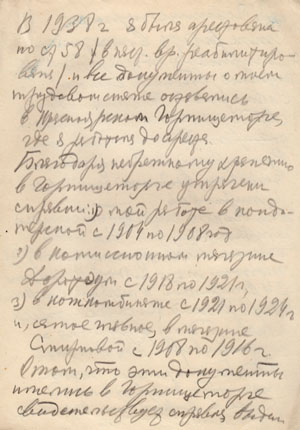 В 1938 г я была арестована
по ст 58 (в наст. вр. реабилитиро-
вана) и все документы о моем
трудовом стаже остались
в Красноярском Горпищеторге,
где я работала до ареста.
Благодаря небрежному хранению
в Горпищеторге утрачены
справки: 1) мой работе в конди-
терской с 1904 по 1908 год
2) в комиссионном магазине
с 1918 по 1921 г.
3) в с 1921 по 1924 г
и, самое главное, в магазине
Смирновой с 1908 по 1916 г.
О том, что эти документы
имелись в Горпищеторге
свидетельствует справка